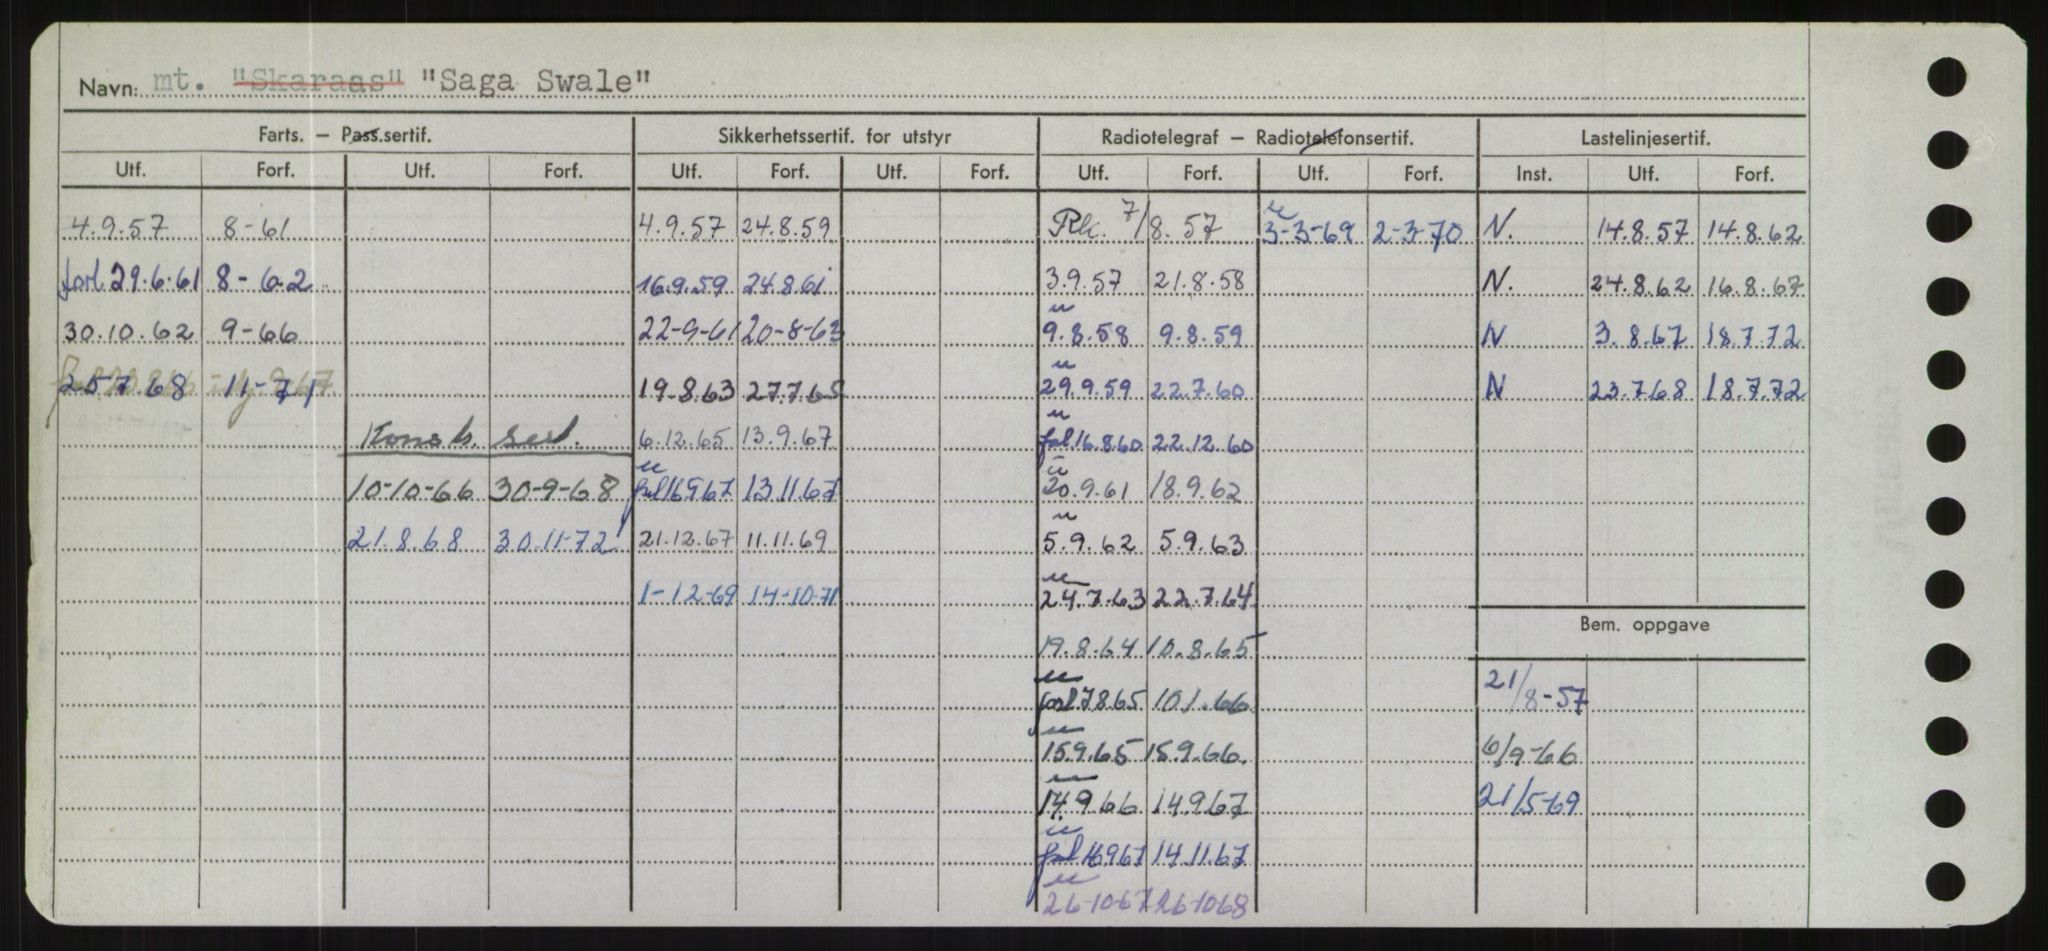 Navn: mt. "Skaraas" "Saga Swale"
Farts. – Pass.sertif. Sikkerhetssertif. for utstyr Radiotelegraf – Radiotelefonsertif. Lastelinjesertif.
Utf. Forf. Utf. Forf. Utf. Forf. Utf. Forf. Utf. Forf. Utf. Forf. Inst. Utf. Forf.
4.9.57 8-61 4.9.57 24.8.59 7/8.57 3-3-69 2-3-70 N. 14.8.57 14.8.62
forl. 29.6.61 8-62 16.9.59 24.8.61 3.9.57 21.8.58 N. 24.8.62 16.8.67
30.10.62 9-66 22-9-61 20-8-63 9.8.58 9.8.59 N 3.8.67 18.7.72
25.7.68 11-71 19.8.63 27.7.65 29.9.59 22.7.60 N 23.7.68 18.7.72
6.12.65 13.9.67 16.8.60 22.12.60
10-10-66 30-9-68 16967 13.11.67 20.9.61 18.9.62
21.8.68 30.11-72 21.12.67 11.11.69 5.9.62 5.9.63
1-12-69 14-10-71 24.7.63 22.7.64
Bem. oppgave
19.8.64 10.8.65
21/8-57
forl. 7865 10.1.66
15.9.65 15.9.66. 6/9-66
14.9.66 14.9.67 21/5-69
16967 14.11.67
26-10-67 26-10-68